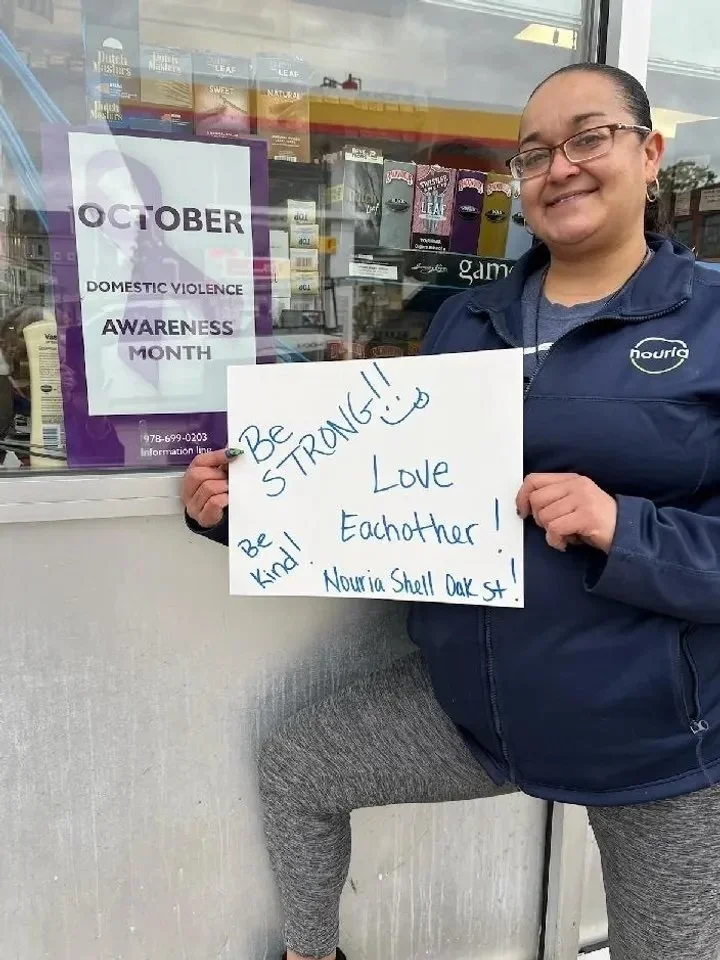 Dutch
Masters
Dutch
Masters
Dutch
Masters
LEAF
SWEET
LEAF
NATURAL
OCTOBER
DOMESTIC VIOLENCE
AWARENESS
MONTH
978-699-0203
Information line
LEAF
TOP
TOP
game
nouria
Be
STRONG!!
Love
Eachother!
Be
Kind!
Nouria Shell Oak St!